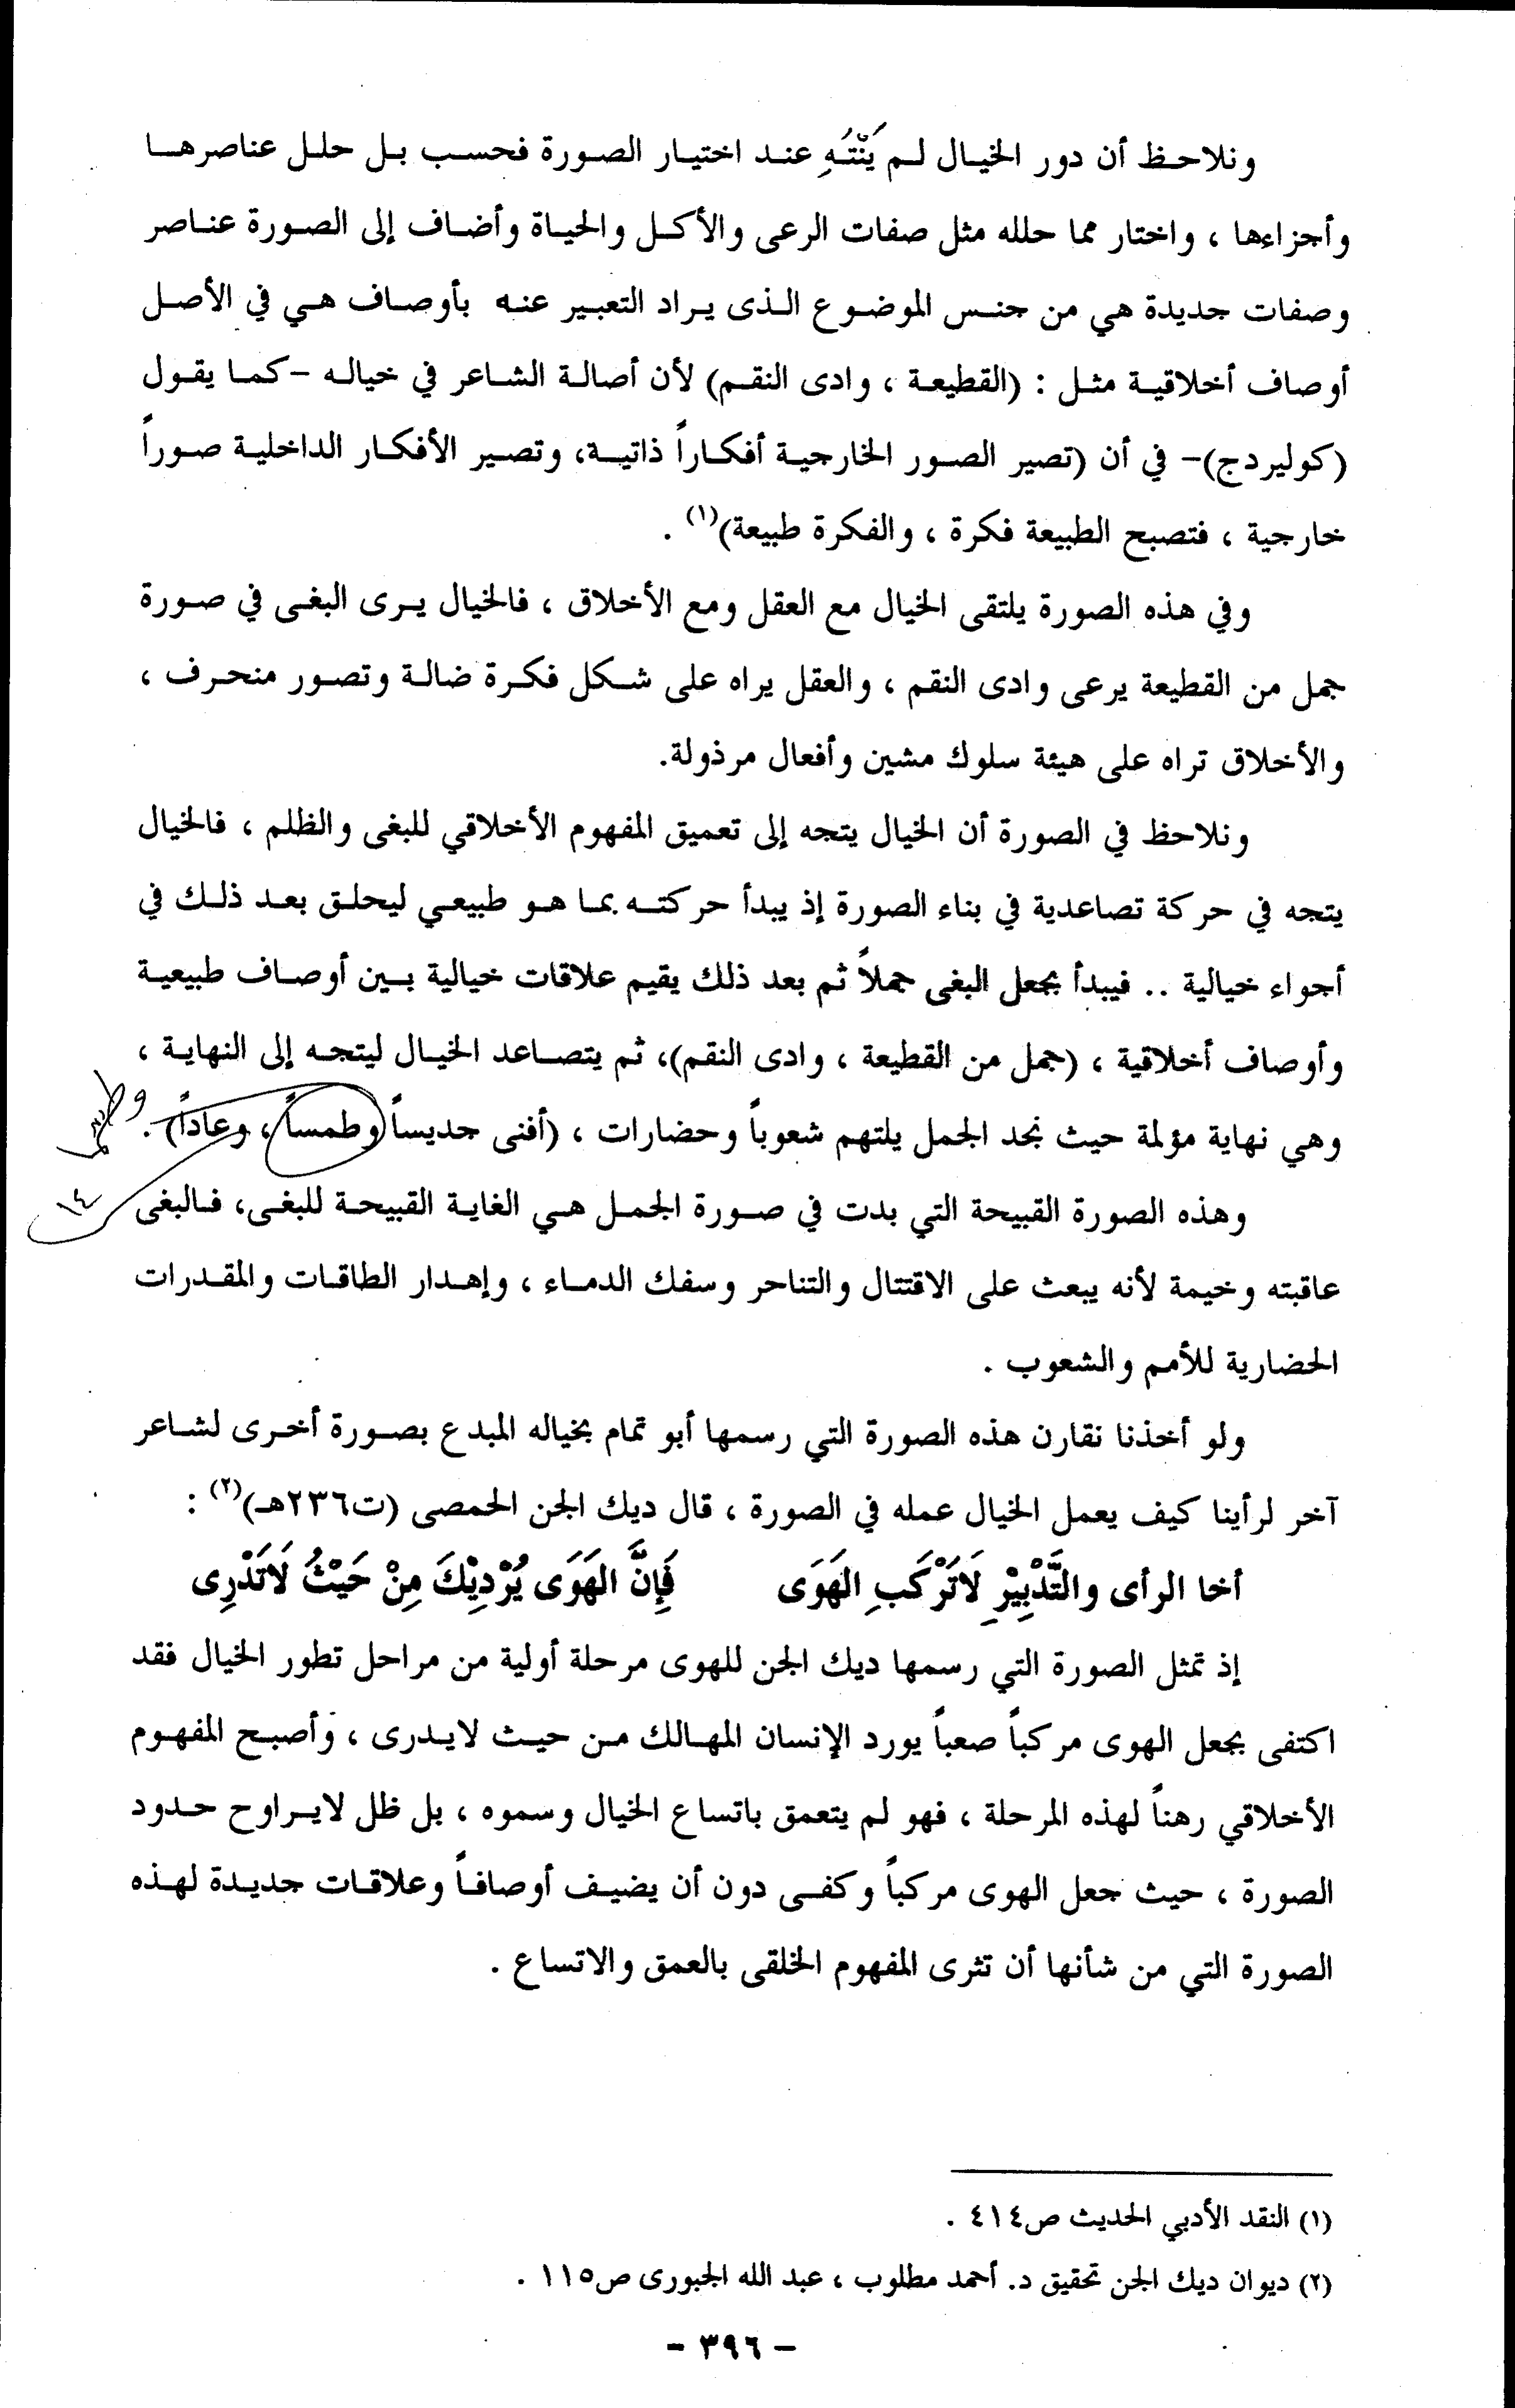 ونلاحظ أن دور الخيال لم يَنْتَهِ عند اختيار الصورة فحسب بل حلل عناصرها
وأجزاءها ، واختار مما حلله مثل صفات الرعى والأكل والحياة وأضاف إلى الصورة عناصر
وصفات جديدة هي من جنس الموضوع الذى يراد التعبير عنه بأوصاف هي في الأصل
أوصاف أخلاقية مثل : (القطيعة ، وادى النقم) لأن أصالة الشاعر في خياله -كما يقول
(كوليردج)- في أن (تصير الصور الخارجية أفكاراً ذاتية، وتصير الأفكار الداخلية صوراً
خارجية ، فتصبح الطبيعة فكرة ، والفكرة طبيعة)(١) .
وفي هذه الصورة يلتقى الخيال مع العقل ومع الأخلاق ، فالخيال يرى البغى في صورة
جمل من القطيعة يرعى وادى النقم ، والعقل يراه على شكل فكرة ضالة وتصور منحرف ،
والأخلاق تراه على هيئة سلوك مشين وأفعال مرذولة.
ونلاحظ في الصورة أن الخيال يتجه إلى تعميق المفهوم الأخلاقي للبغى والظلم ، فالخيال
يتجه في حركة تصاعدية في بناء الصورة إذ يبدأ حركته بما هو طبيعي ليحلق بعد ذلك في
أجواء خيالية .. فيبدأ بجعل البغى جملاً ثم بعد ذلك يقيم علاقات خيالية بين أوصاف طبيعية
وأوصاف أخلاقية ، (جمل من القطيعة ، وادى النقم)، ثم يتصاعد الخيال ليتجه إلى النهاية ،
وهي نهاية مؤلمة حيث نجد الجمل يلتهم شعوباً وحضارات ، (أفنى جديساً وطمساً ، وعاداً) .
وهذه الصورة القبيحة التي بدت في صورة الجمل هي الغاية القبيحة للبغى، فالبغى
١٤
عاقبته وخيمة لأنه يبعث على الاقتتال والتناحر وسفك الدماء ، وإهدار الطاقات والمقدرات
الحضارية للأمم والشعوب .
ولو أخذنا نقارن هذه الصورة التي رسمها أبو تمام بخياله المبدع بصورة أخرى لشاعر
آخر لرأينا كيف يعمل الخيال عمله في الصورة ، قال ديك الجن الحمصى (ت٢٣٦هـ)(٢) :
أخا الرأى والتَّدْبِيْرِ لَاتَرْكَبِ الهَوَى فَإِنَّ الهَوَى يُرْدِيْكَ مِنْ حَيْثُ لَاتَدْرِى
إذ تمثل الصورة التي رسمها ديك الجن للهوى مرحلة أولية من مراحل تطور الخيال فقد
اكتفى بجعل الهوى مركباً صعباً يورد الإنسان المهالك من حيث لايدرى ، وأصبح المفهوم
الأخلاقي رهناً لهذه المرحلة ، فهو لم يتعمق باتساع الخيال وسموه ، بل ظل لايراوح حدود
الصورة ، حيث جعل الهوى مركباً وكفى دون أن يضيف أوصافاً وعلاقات جديدة لهذه
الصورة التي من شأنها أن تثرى المفهوم الخلقى بالعمق والاتساع .
(١) النقد الأدبي الحديث ص٤١٤ .
(٢) ديوان ديك الجن تحقيق د. أحمد مطلوب ، عبد الله الجبورى ص١١٥ .
- ٣٩٦ -